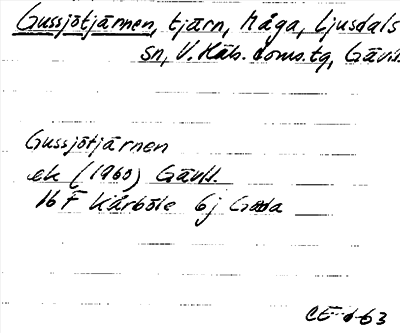 Gussjötjärnen, tjärn, Måga, Ljusdals
sn, V. Häls. doms.tg, Gävl.
Gussjötjärnen
ek (1960) Gävl.
16 F Kårböle 6j Gåda
CE 63